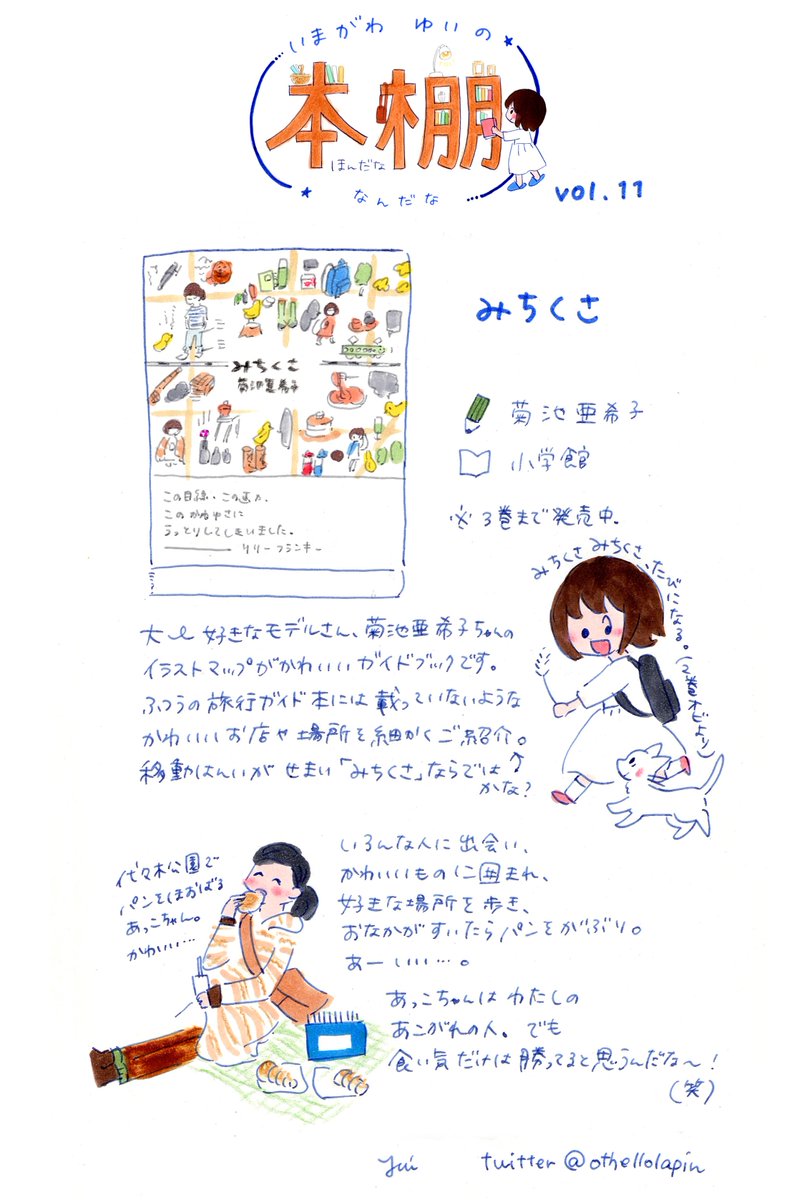 いまがわ ゆいの
本棚
ほんだな
なんだな
vol.11
みちくさ
菊池亜希子
この目線・この画力、
このかわゆさに
うっとりしてしまいました。
リリーフランキー
みちくさ
菊池亜希子
小学館
※3巻まで発売中.
みちくさみちくさ、たびになる。(2巻オビより)
大大好きなモデルさん、菊池亜希子ちゃんの
イラストマップがかわいいガイドブックです。
ふつうの旅行ガイド本には載っていないような
かわいいお店や場所を細かくご紹介。
移動はんいがせまい「みちくさ」ならでは
かな?
代々木公園で
パンをほおばる
あっこちゃん。
かわいい…
いろんな人に出会い、
かわいいものに囲まれ、
好きな場所を歩き、
おなかがすいたらパンをがぶり。
あーいい…。
あっこちゃんはわたしの
あこがれの人。でも
食い気だけは勝ってると思うんだな〜!
(笑)
Yui
twitter @othellolapin